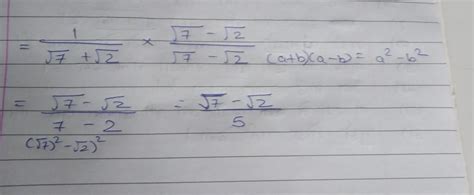 = 1/(√7 + √2) × (√7 - √2)/(√7 - √2) (a+b)(a-b) = a² - b²
= (√7 - √2)/(7 - 2) = (√7 - √2)/5
(√7)² - √2)²